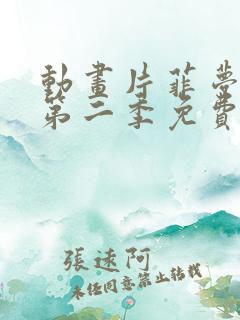 動畫片菲夢
第二季免費
張速阿
未经同意禁止转载